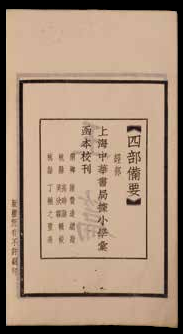 【四部備要】
經部
上海中華書局據小學彙
函本校刊
桐鄉 陸費逵 總勘
杭縣 高時顯 輯校
杭縣 吳汝霖 輯校
杭縣 丁輔之 監造
版權所有不許翻印